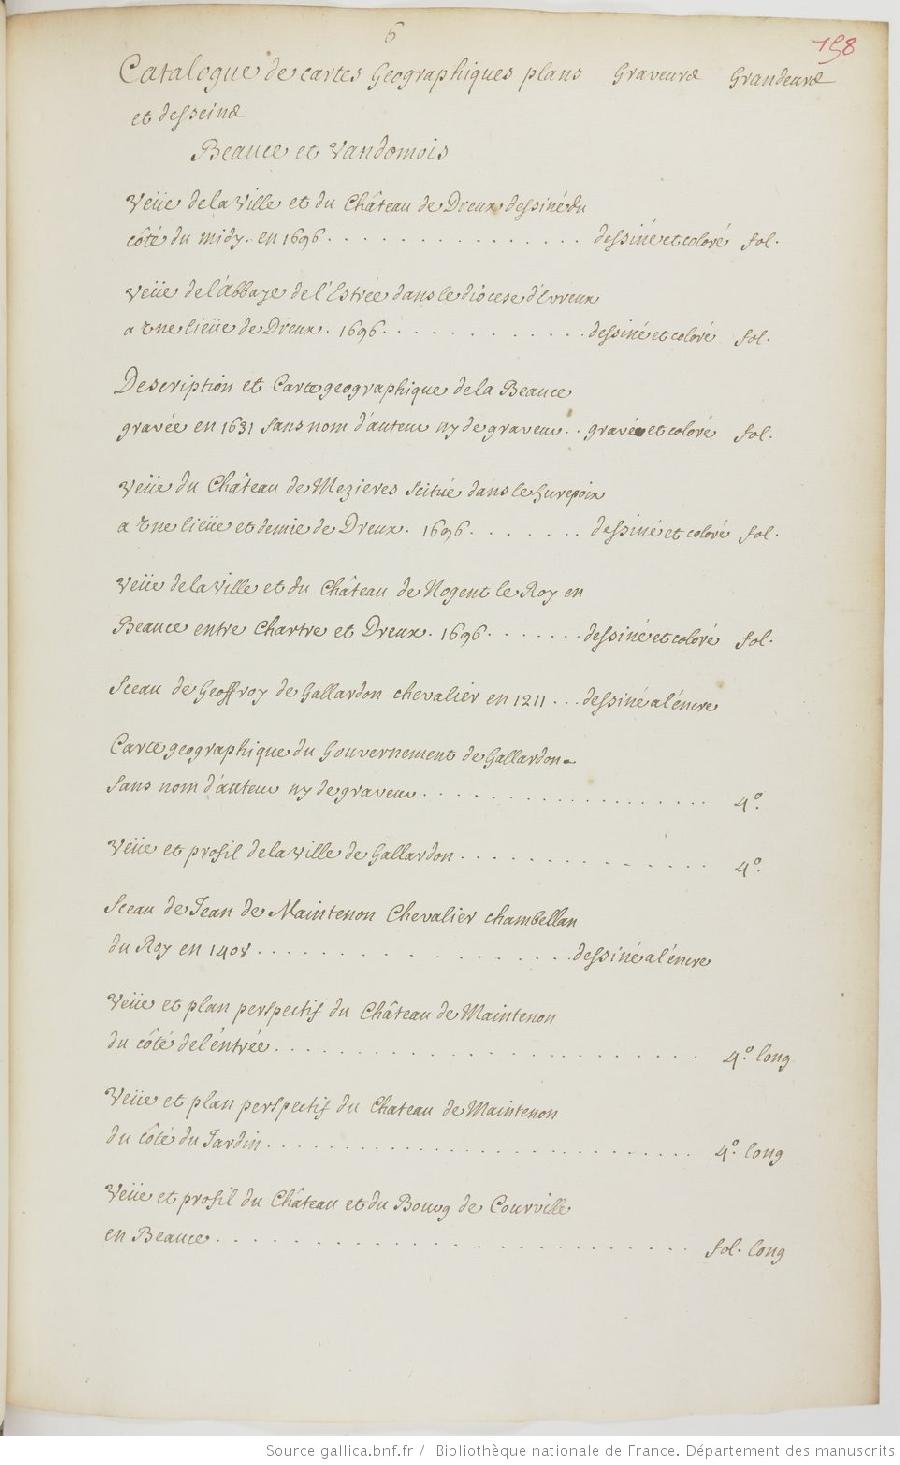 6
158
Catalogue de cartes Geographiques plans Graveurs Grandeurs
et desseins
Beauce et Vandomois
Veüe de la Ville et du Château de Dreux dessiné du
côté du midy. en 1696. . . . . . . . . . . . . . . dessiné et coloré fol.
Veüe de l'Abbaye de l'Estrée dans le diocese d'Evreux
a vne lieüe de Dreux. 1696. . . . . . . . . . . . . dessiné et coloré fol.
Description et Carte geographique de la Beauce
gravée en 1631 sans nom d'auteur ny de graveur. . gravée et coloré fol.
Veüe du Château de Mezieres scitué dans le hurepoix
a vne lieüe et demie de Dreux. 1696. . . . . . . dessiné et coloré fol.
Veüe de la Ville et du Château de Nogent le Roy en
Beauce entre Chartre et Dreux. 1696. . . . . . . dessiné et coloré fol.
Sceau de Geoffroy de Gallardon chevalier en 1211 . . . dessiné a l'encre
Carte geographique du Gouvernement de Gallardon
sans nom d'auteur ny de graveur. . . . . . . . . . . . . . . . . 4.º
Veüe et profil de la Ville de Gallardon. . . . . . . . . . . . . . . 4.º
Sceau de Jean de Maintenon Chevalier chambellan
du Roy en 1408. . . . . . . . . . . . . . . . . . dessiné a l'encre
Veüe et plan perspectif du Château de Maintenon
du côté de l'éntrée. . . . . . . . . . . . . . . . . . . . . . . . 4.º long
Veüe et plan perspectif du Chateau de Maintenon
du côté du Jardin. . . . . . . . . . . . . . . . . . . . . . . . 4.º long
Veüe et profil du Château et du Bourg de Courville
en Beauce. . . . . . . . . . . . . . . . . . . . . . . . . . . fol. long
Source gallica.bnf.fr / Bibliothèque nationale de France. Département des manuscrits